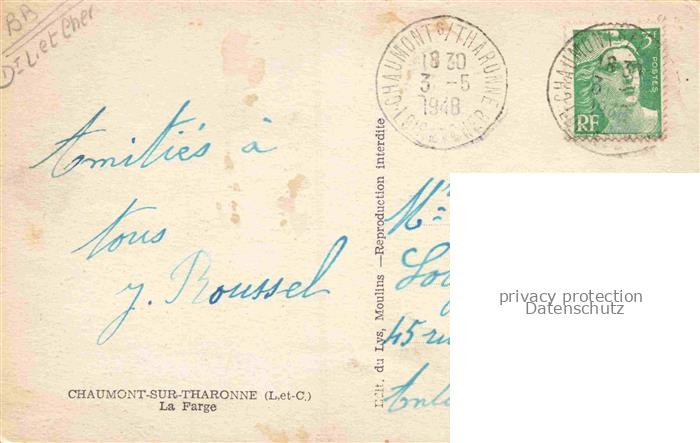 BB
Dt L et Cher
CHAUMONT S/ THARONNE
18 30
3 -5
1948
LOIR-ET-CHER
3F
POSTES
RF
Amitiés à
tous
y. Roussel
Edit. du Lys, Moulins — Reproduction interdite
45 ru
privacy protection
Datenschutz
CHAUMONT-SUR-THARONNE (L.et-C.)
La Farge